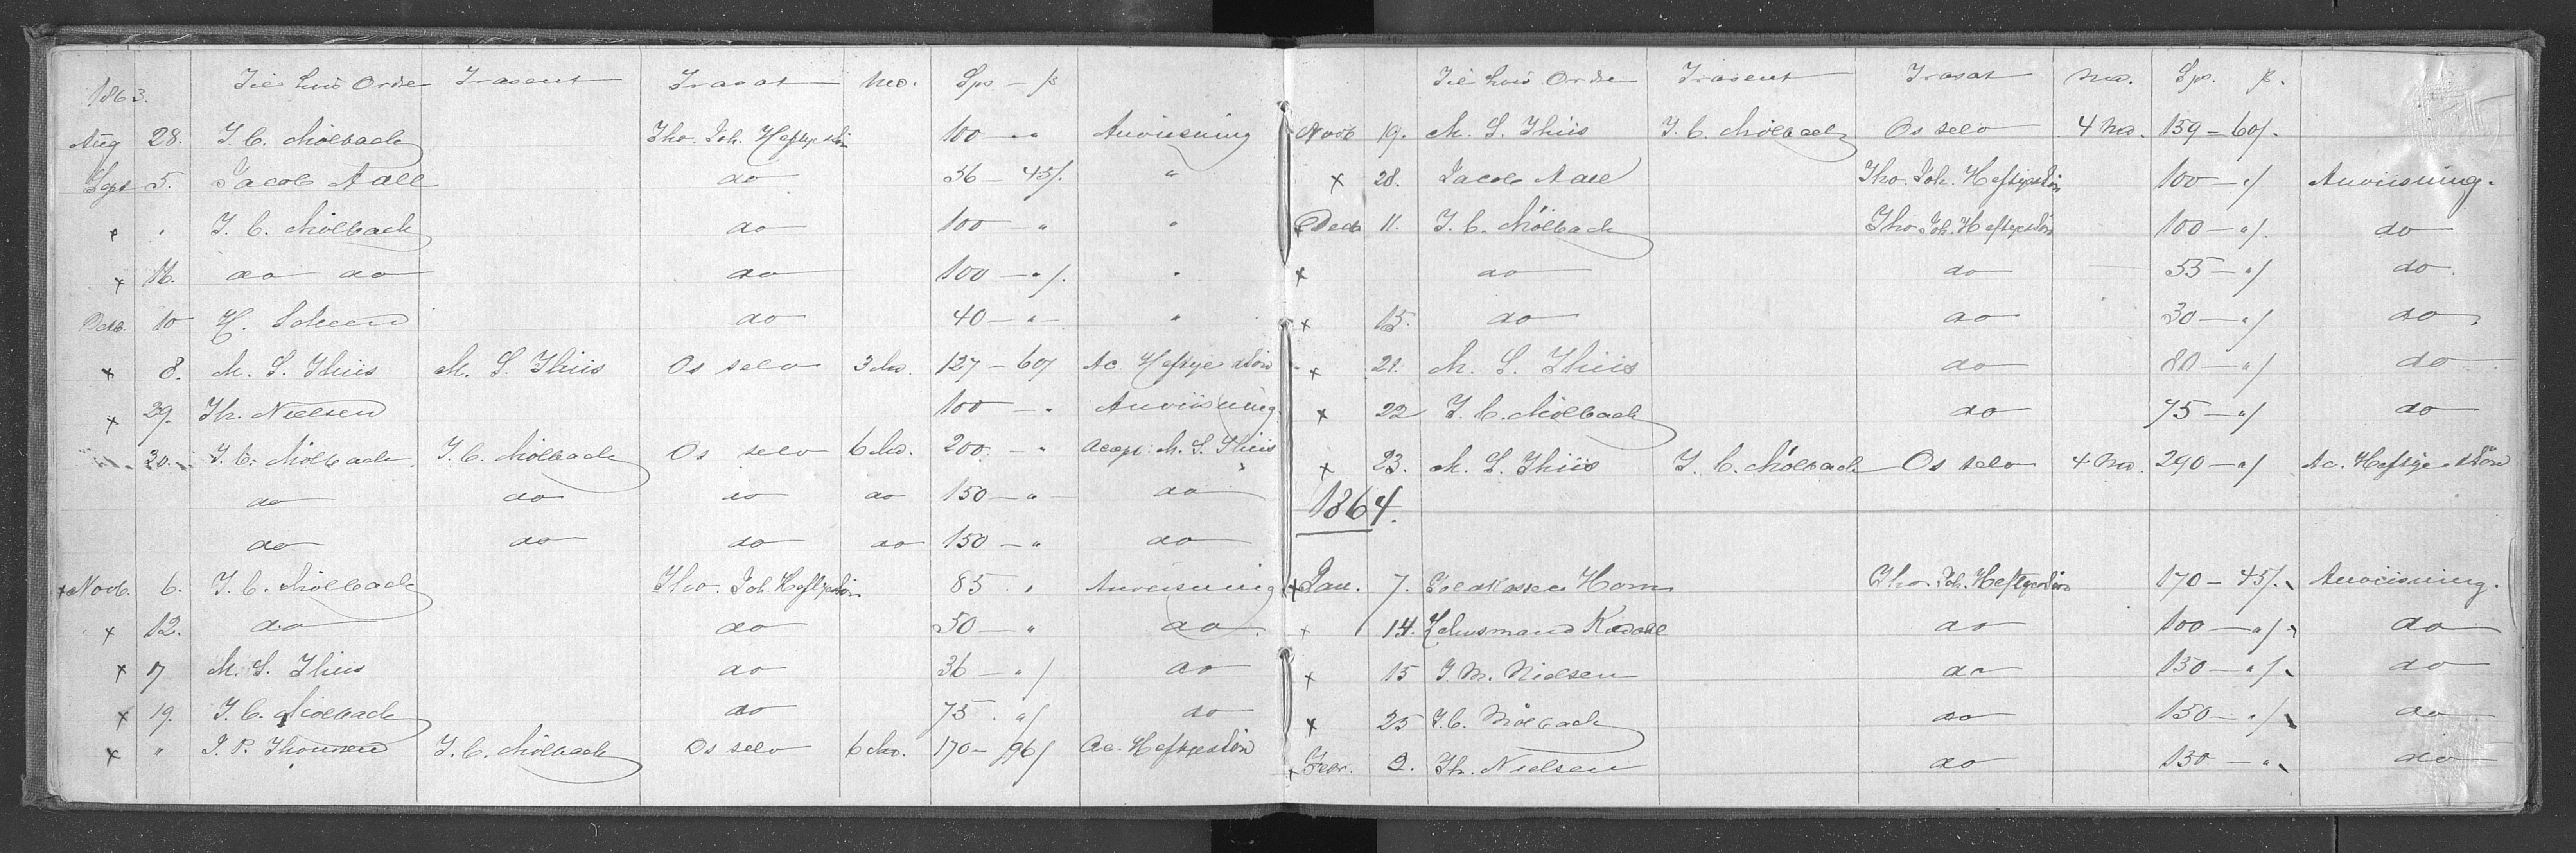 1863. Til hvis Ordre Trasent Trasat Md. Sps. – ß
Aug 28. J. C. Mölbach Tho. Joh. Heftye & Søn 100 – " Anviisning
Sept 5. Jacob Aall do 36 – 45/. "
" " J. C. Mölbach do 100 – " "
x 16. do do do 100 – "/. "
10 H. do 40 – " – "
x 8. M. S. Thiis M. S. Thiis Os selv 3 Md. 127 – 60/ Ac. Heftye & Søn
x 29. Th. Nielsen 100 – " Anviisning.
30. J. C. Mölbach J. C. Mölbach Os selv 6 Md. 200. – " Accept: M. S. Thiis
do do do do 150 – " – do
do do do do 150 – " do
x Novb. 6. J. C. Mölbach Tho. Joh. Heftye & Søn 85. " Anviisning
x 12. do do 50 – " do
x 17 M. S. Thiis do 36 – "/ do
x 19. J. C. Mölbach do 75. "/ do
x " J. P. Thomsen J. C. Mölbach Os selv 6 Md. 170 – 96/ Ac. Heftye & Søn
Til hvis Ordre Trasent Trasat Md. Sps. ß.
Novb 19. M. S. Thiis J. C. Mölbach Os selv 4 Md. 159 – 60/.
x 28. Jacob Aall Tho. Joh. Heftye & Søn 100 – "/ Anviisning.
x Decb 11. J. C. Mölbach Tho. Joh. Heftye & Søn 100 – "/. do
x do do 55 – "/ do.
x 15. do do 30 – "/ do
x 21. M. S. Thiis do 80 – "/ do
x 22 J. C. Mölbach do 75 – "/ do
x 23. M. S. Thiis J. C. Mölbach Os selv 4 Md. 290 – "/ Ac. Heftye & Søn
1864.
x Jan. 7. Horn Tho. Joh. Heftye & Søn 170 – 45/. Anviisning.
x 14. Lehnsmand do 100 – "/. do
x 15 J. M. Nielsen do 150 – "/. do
x 25 J. C. Mölbach do 150 – "/. do
x Febr. 2. Th. Nielsen do 130 – ". do